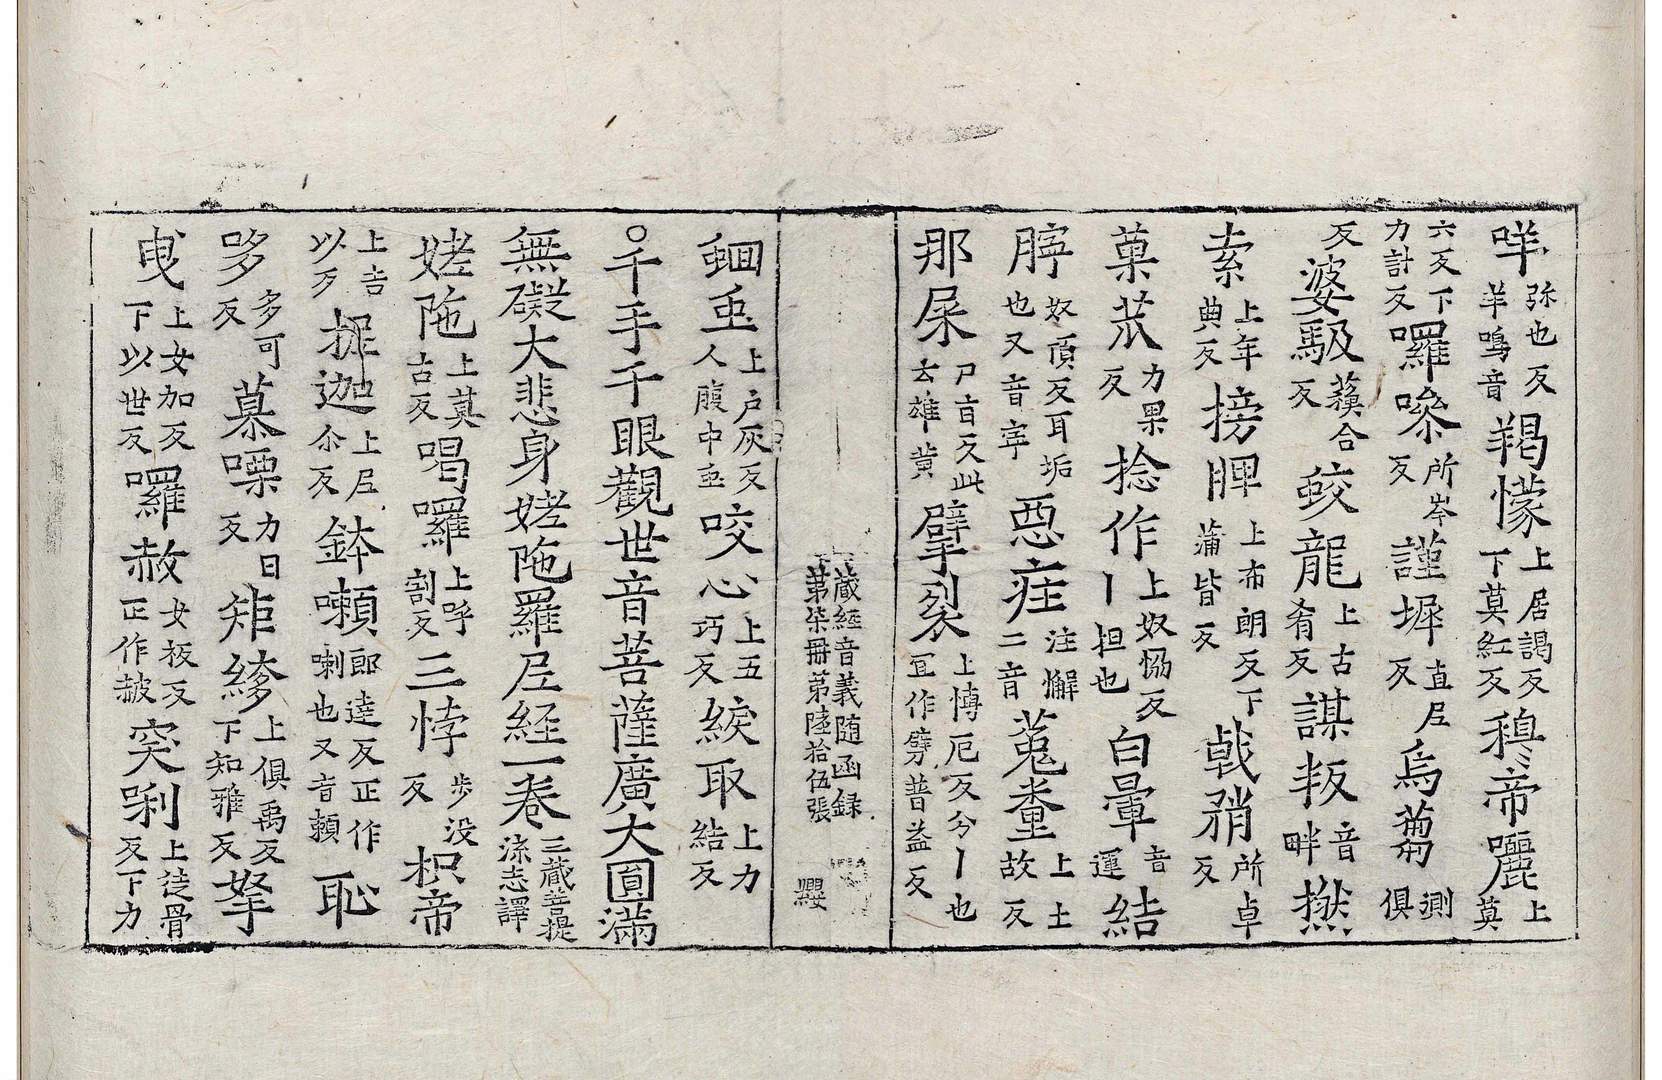 咩弥也反羊鳴音羯懞上居謁反下莫紅反穆帝㘑上莫
六反下力計反囉嘇所岑反謹墀直尼反烏蒭測俱
反婆馺蘓合反蛟龍上古肴反謀叛音畔㨷
索上年典反搒脾上布朗反下蒲皆反戟矟所卓反
菓蓏力果反捻作上奴恊反丨担也白暈音運結
聹奴頂反耳垢也又音寜惡疰注懈二音蒐𡊅上土故反
那屎尸旨反此云雄黄擘裂上愽厄反分丨也冝作劈普益反
藏經音義随函録
第柒冊第陸拾伍張 㲽
蛔䖝上戶灰反人腹中䖝咬心上五巧反綟取上力結反
○千手千眼觀世音菩薩廣大圓滿
無礙大悲身姥陁羅尼経一卷三藏菩提流志譯
姥陁上莫古反喝囉上呼割反三悖步没反枳帝
上吉以反抳迦上尼尒反鉢嚩郎達反正作喇也又音頼耻
哆多可反慕㗚力日反矩䋾上俱禹反下知雅反拏
曳上女加反下以世反囉赧女板反正作赧突唎上徒骨反下力